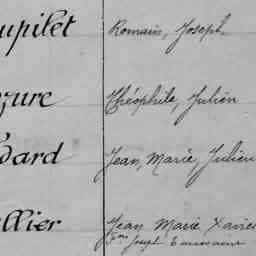 upilet Romain, Joseph
zure Théophile, Julien
dard Jean, Marie, Julien
llier Jean Marie Xavier